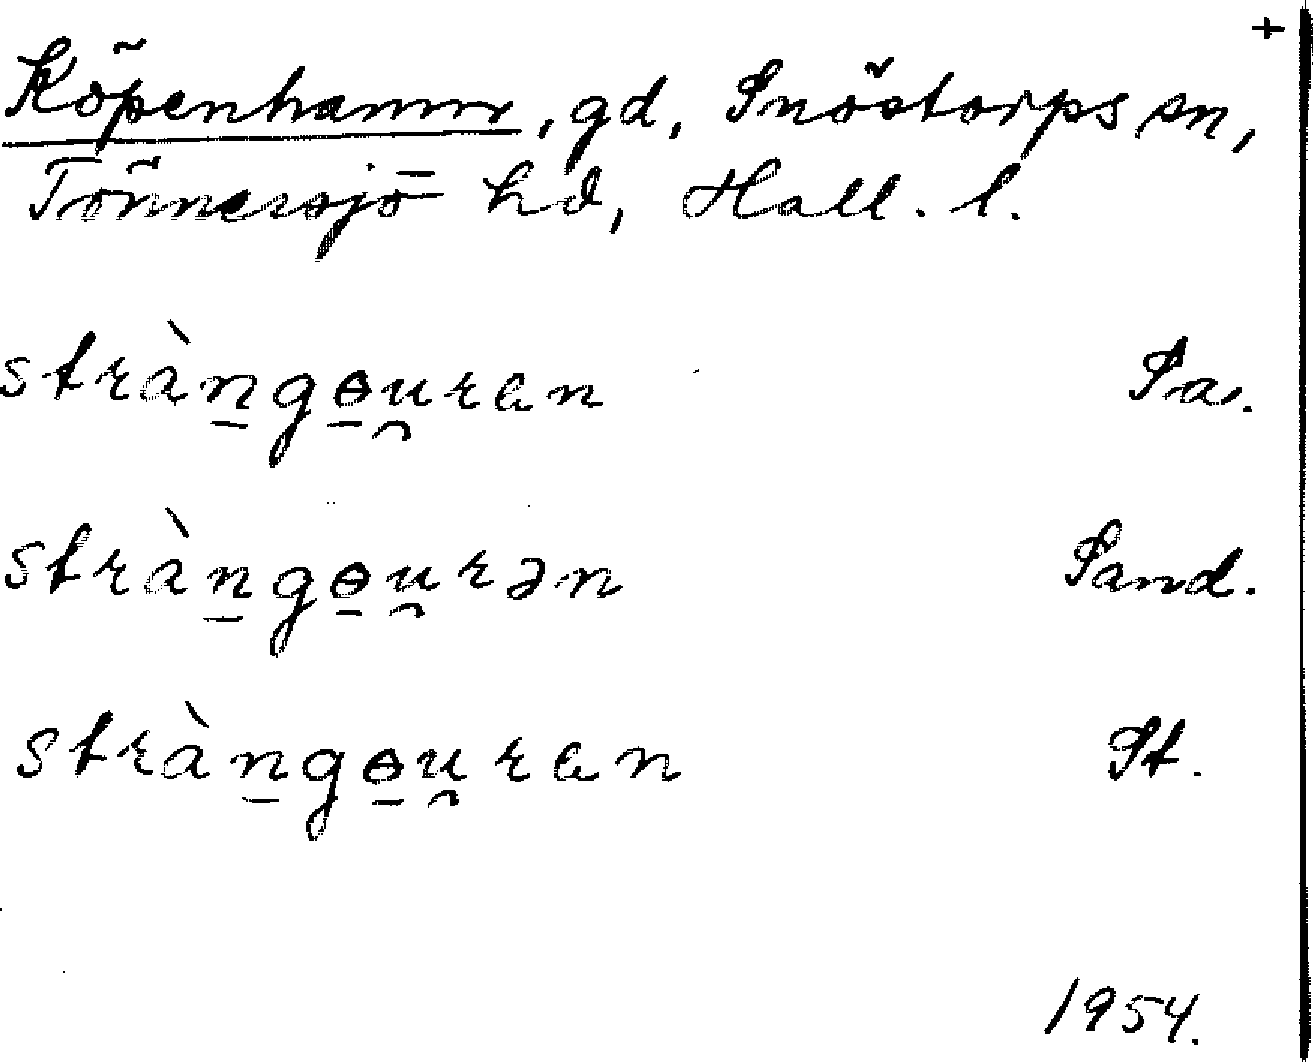 +
Köpenhamn, gd, Snöstorps sn,
Tönnersjö hd, Hall. l.
stràn̲gɵ̲u̯ran Sa.
stràn̲gɵ̲u̯rən Sand.
stràn̲gɵ̲u̯ran St.
1954.